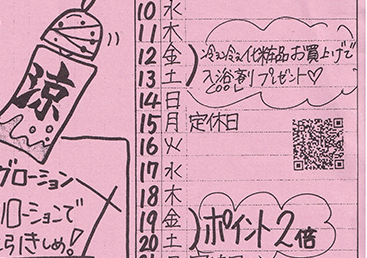 涼
グローション
ローションで
引きしめ!
10 水
11 木
12 金
13 土
冷え冷え化粧品お買上げで
入浴剤プレゼント♡
COOL
14 日
15 月 定休日
16 火
17 水
18 木
19 金
20 土
ポイント2倍